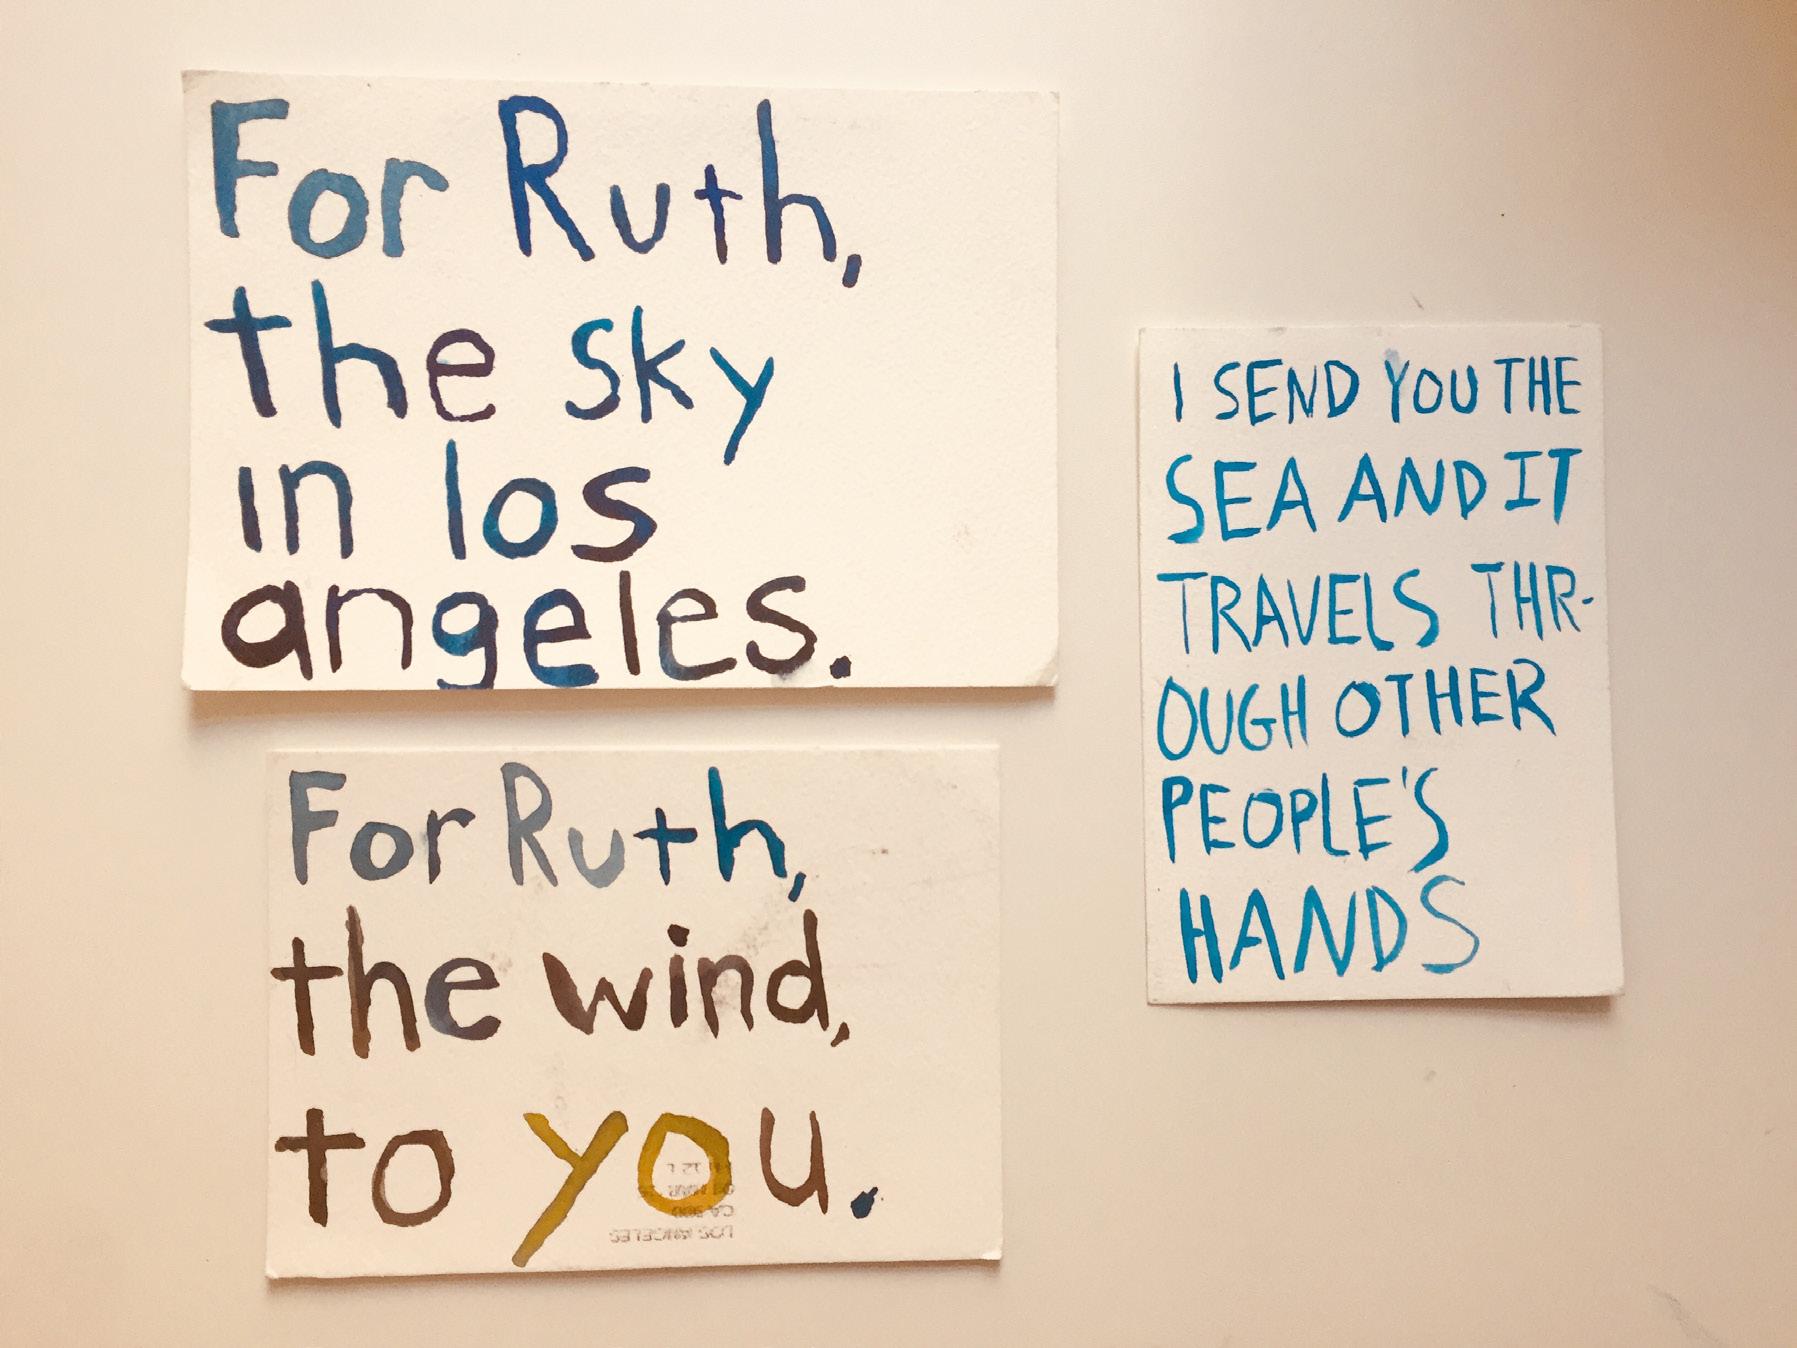 For Ruth,
the sky
in los
angeles.
For Ruth,
the wind,
to you.
LOS ANGELES
I SEND YOU THE
SEA AND IT
TRAVELS THR-
OUGH OTHER
PEOPLE'S
HANDS